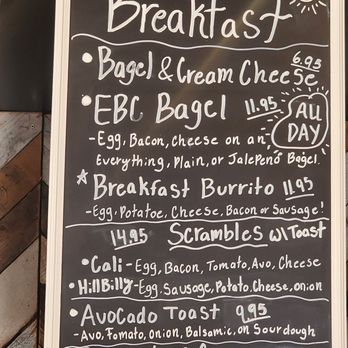 Breakfast
• Bagel & Cream Cheese 6.95
• EBC Bagel 11.95
ALL DAY
- Egg, Bacon, Cheese on an
Everything, Plain, or Jalepeño Bagel.
☆ Breakfast Burrito 11.95
- Egg, Potatoe, Cheese, Bacon or Sausage!
14.95 Scrambles w/ Toast
• Cali - Egg, Bacon, Tomato, Avo, Cheese
• HillBilly - Egg, Sausage, Potato, Cheese, onion
• Avocado Toast 9.95
- Avo, Tomato, Onion, Balsamic, on Sourdough